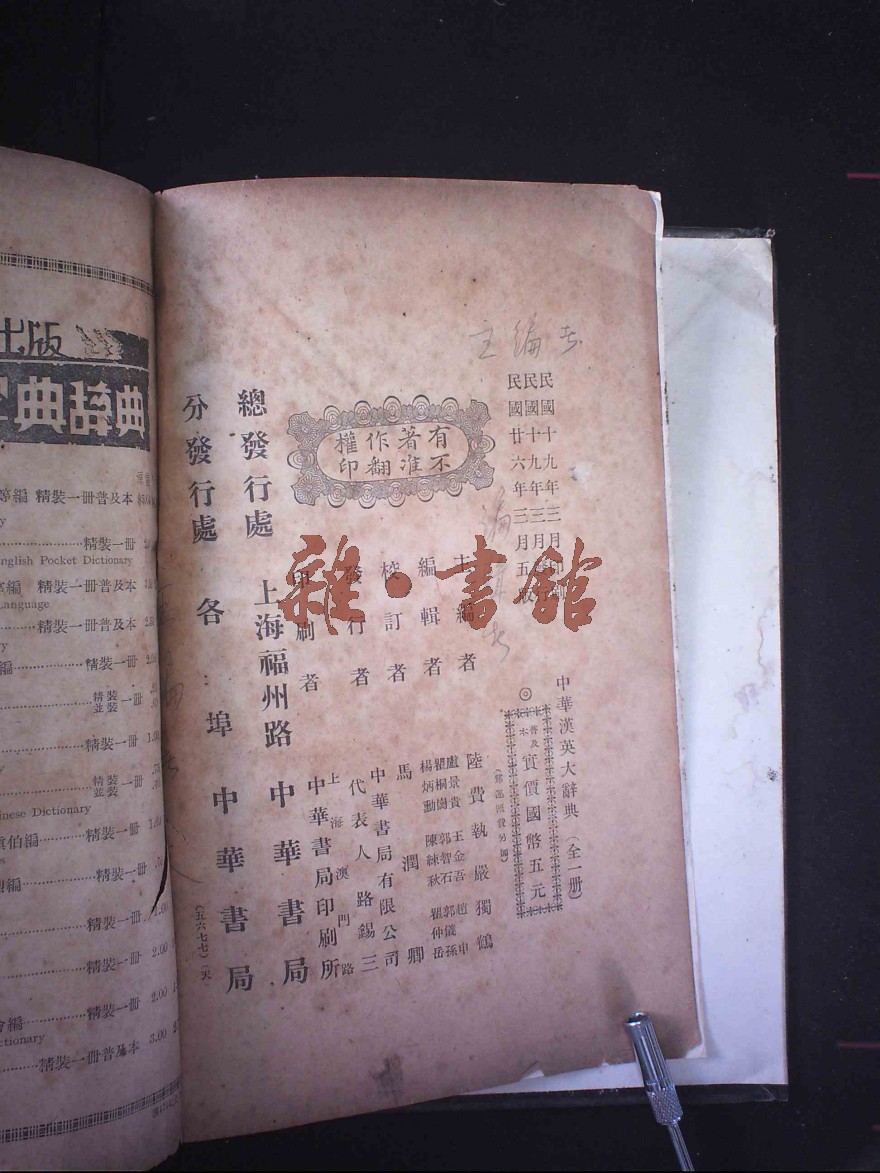 主編者
民國十九年三月印刷
民國十九年三月
民國廿六年三月五版
有不
著准
作翻
權印
中華漢英大辭典（全一冊）
◎普及本實價國幣五元
主編者 陸費執 嚴獨鶴
編輯者
盧景貴 王金吾 趙申
瞿桐崗 郭智石 郭儀孫
楊炳勳 陳練秋 瞿仲岳
校訂者 馬潤卿
發行者 中華書局有限公司
代表人 路錫三
印刷者
上海澳門路
中華書局印刷所
總發行處 上海福州路 中華書局
分發行處 各埠 中華書局
（五六七七）（天
雜·書館
出版
字典辭典
精裝一冊普及本
精裝一冊
English Pocket Dictionary
精裝一冊普及本
Language
精裝一冊普及本
精裝一冊
精裝
並裝 一冊
精裝一冊
精裝
並裝 一冊
Chinese Dictionary
精裝一冊
精裝一冊
精裝一冊
精裝一冊 2.00
精裝一冊 2.00
精裝一冊普及本 3.00